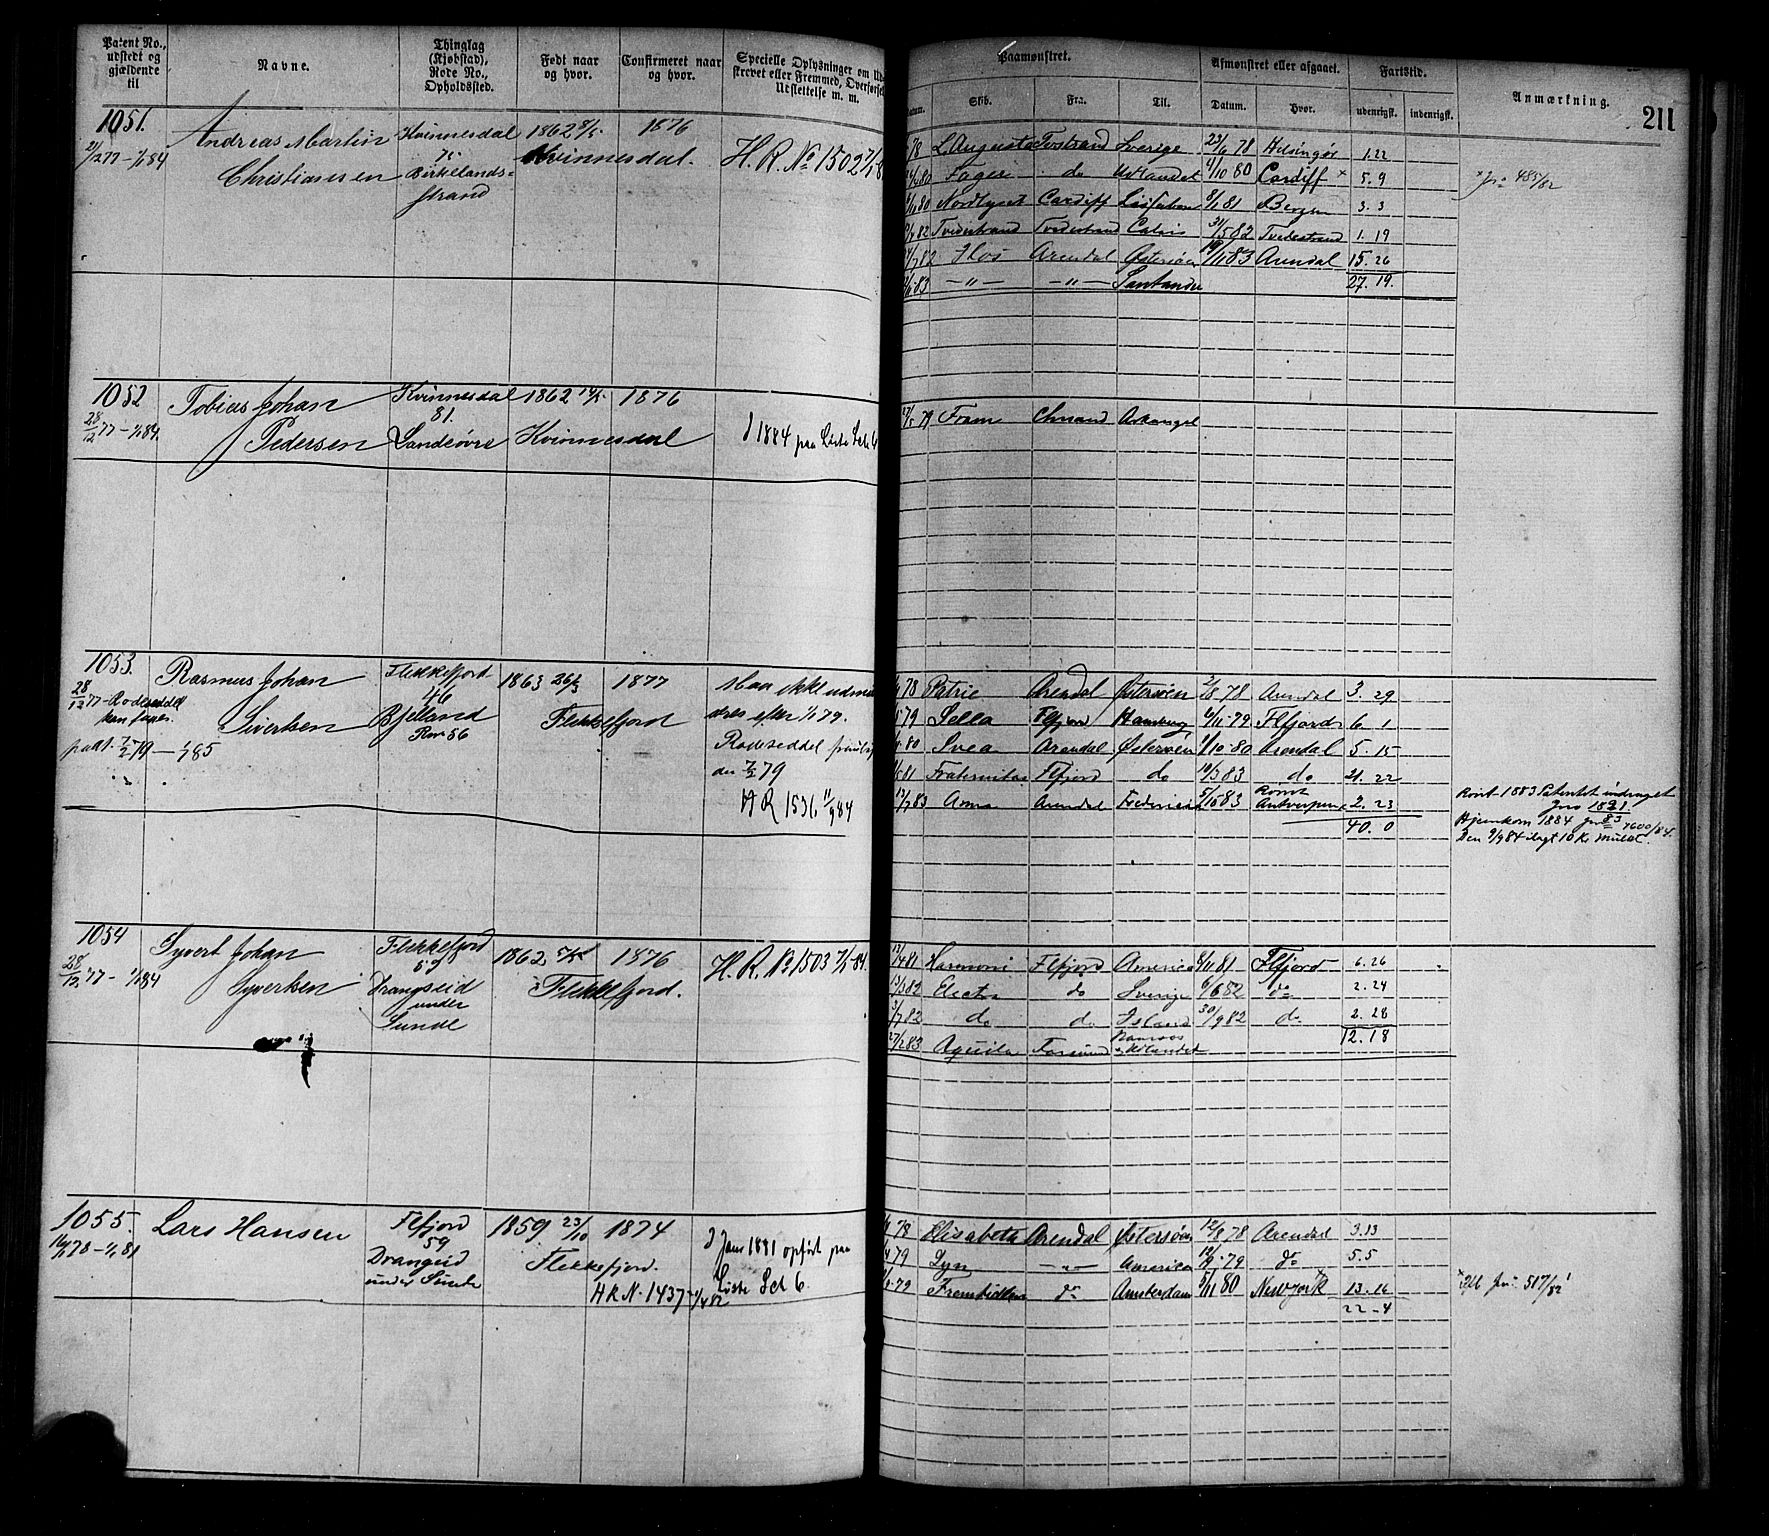 Patent No., udstedt og gjældende til
Navne.
Thinglag (Kjøbstad), Rode No., Opholdssted.
Født naar og hvor.
Confirmeret naar og hvor.
Specielle Oplysninger om
strevet eller Fremmed, Overførsel
Udslettelse m. m.
Paamønstret.
Afmønstret eller afgaaet.
Fartstid.
Anmærkning.
211
Datum.
Skib.
Fra.
Til.
Datum.
Hvor.
udenrigsk.
indenrigsk.
1051.
21/12 77 - 1/1 84
Andreas Martin
Christiansen
Kvinnesdal
75
Birkelands-
strand
1862 8/5
1876
Kvinnesdal.
H. R. No 1502 7/1 8
78 L. Augusta Tvestrand Sverige 23/6 78 Helsingør 1.22
80 Fager do Udlandet 4/10 80 Cardiff x 5.9
80 Nordlyset Cardiff Lissabon 8/1 81 Bergen 3.3
82 Tvedestrand Tvedestrand Calais 31/5 82 Tvedestrand 1.19
82 Arendal Østersøen 19/11 83 Arendal 15.26
83 — " — — " — Santander 27.19.
x Jr: 485/82
1052
28/12 77 - 1/1 84.
Tobias Johan
Pedersen
Kvinnesdal
81.
Sandeøvre
1862 14/5
1876
Kvinnesdal
I 1884 paa Liste Sch 6
27/5 79 Fram Chrsand Arkangel
1053.
28/12 77 - Rodeseddel
padt. 7/2 79 — 1/1 85
Rasmus Johan
Sivertsen
Flekkefjord
46
Bjelland
Rom 56
1863 26/3
1877
Flekkefjord
Maa ikke udmøn
dres efter 1/1 79.
Rodeseddel
den 7/2 79
H R 1531 11/9 84
78 Patrie Arendal Østersøen 2/8 78 Arendal 3.29
79 Sella Flfjord Hamburg 6/11 79 Flfjord 6 1
80 Svea Arendal Østersøen 1/10 80 Arendal 5.15
81 Fraternitas Flfjord do 10/3 83 do 21.22
13/7 83 Arendal 5/10 83 Rømt Antwerpen x 2.23
40.0
Rømt 1883 Patentet inddraget
Jno 1821/83
Hjemkom 1884 jno 1600/84.
Den 9/9 84 ilagt 10 Kr mulct.
1054
28/12 77 - 1/1 84
Syvert Johan
Syvertsen
Flekkefjord
59
Drangseid
under
Sunde
1862
1876
Flekkefjord.
H. R. No 1503 7/1 84.
12/4 81 Harmoni Flfjord America 8/11 81 Flfjord 6.26
13/3 82 Electra do Sverige 6/6 82 do 2.24
3/7 82 do do Island 30/9 82 do 2.28
27/2 83 Aquila Farsund Ramsøs & Udlandet 12.18
1055.
16/1 78 - 1/1 81
Lars Hansen
Flfjord
59
Drangeid
under Sunde
1859 23/10
1874
Flekkefjord.
H R N. 1437 /4 82
I Janr 1881 opført paa
Liste Sch 6.
78 Elisabeth Arendal Østersøen 12/8 78 Arendal 3.13
79 Lyn — " — America 12/9 79 do 5.5
79 Fremtiden do Amsterdam 5/11 80 Newyork 13.16
22 - 4
x Jno: 517/82